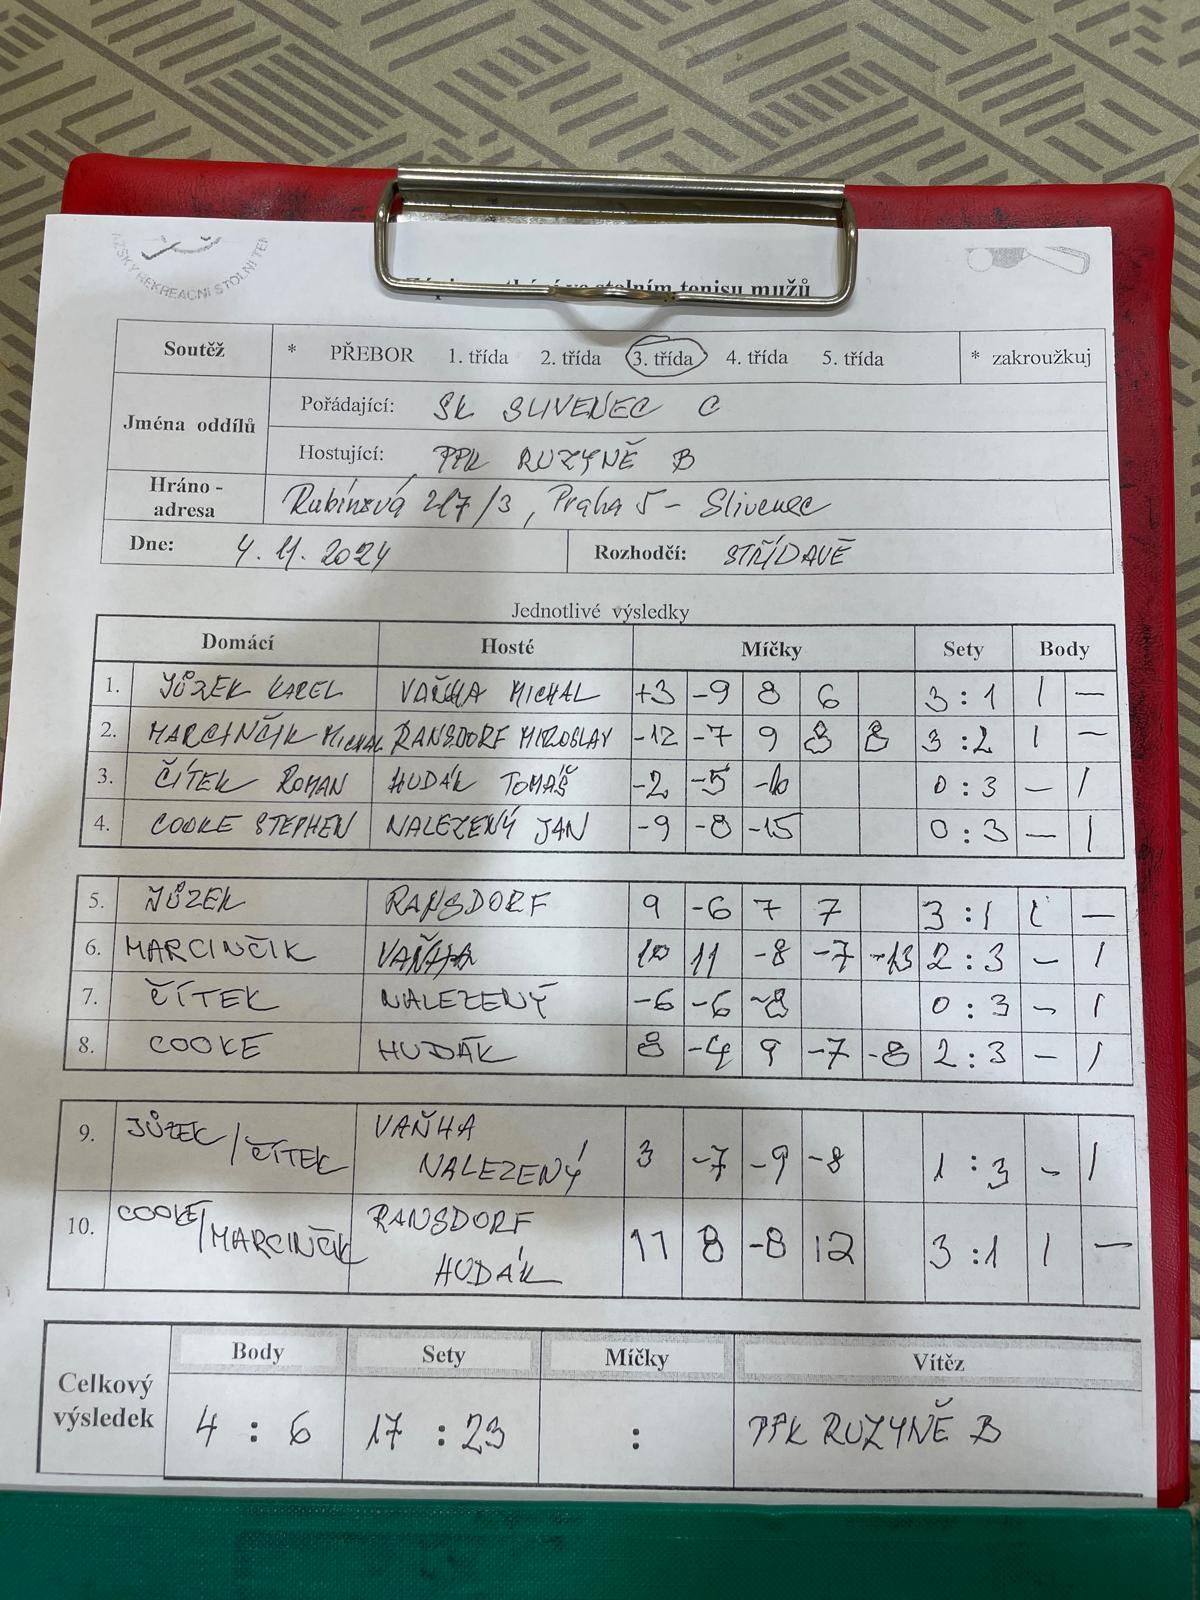 REKREAČNÍ STOLNÍ TEN
ve stolním tenisu mužů
Soutěž * PŘEBOR 1. třída 2. třída 3. třída 4. třída 5. třída * zakroužkuj
Jména oddílů
Pořádající: SK SLIVENEC C
Hostující: PPK RUZYNĚ B
Hráno - adresa Rubínová 217/3, Praha 5 - Slivenec
Dne: 4.11.2024 Rozhodčí: STŘÍDAVĚ
Jednotlivé výsledky
Domácí Hosté Míčky Sety Body
1. JŮZEK KAREL VAŇHA MICHAL +3 -9 8 6 3:1 1 —
2. MARCINČIK Michal RANSDORF MIROSLAV -12 -7 9 8 8 3:2 1 —
3. ČÍTEK ROMAN HUDÁK TOMÁŠ -2 -5 0:3 — 1
4. COOKE STEPHEN NALEZENÝ JAN -9 -8 -15 0:3 — 1
5. JŮZEK RANSDORF 9 -6 7 7 3:1 1 —
6. MARCINČIK VAŇHA 10 11 -8 -7 -13 2:3 — 1
7. ČÍTEK NALEZENÝ -6 -6 -8 0:3 — 1
8. COOKE HUDÁK 8 -4 9 -7 -8 2:3 — 1
9. JŮZEK/ČÍTEK VAŇHA NALEZENÝ 3 -7 -9 -8 1:3 — 1
10. COOKE/MARCINČIK RANSDORF HUDÁK 11 8 -8 12 3:1 1 —
Celkový výsledek
Body Sety Míčky Vítěz
4 : 6 17 : 23 : PPK RUZYNĚ B